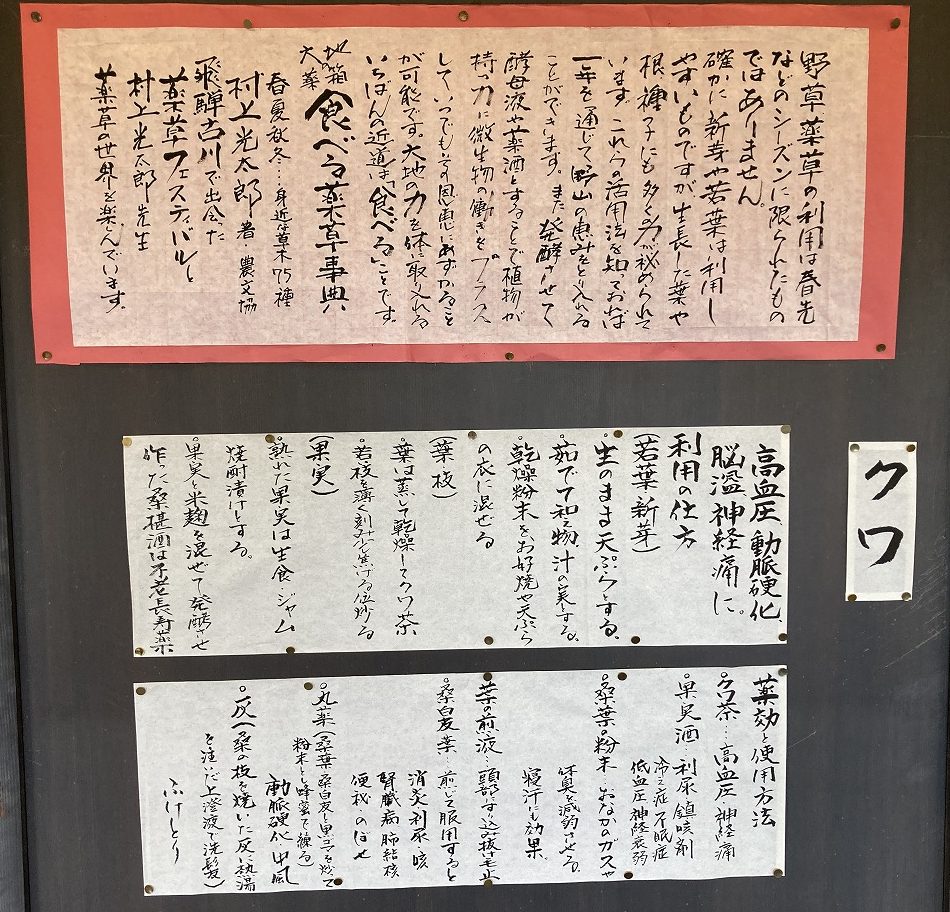 野草薬草の利用は春先
などのシーズンに限られたもの
ではありません。
確かに新芽や若葉は利用し
やすいものですが生長した葉や
根・種子にも多くの力が秘められて
います。これらの活用法を知っておけば
一年を通じて野山の恵みをとり入れる
ことができます。また発酵させて
酵母液や薬酒とすることで植物が
持つ力に微生物の働きをプラス
していつでもその恩恵にあずかること
が可能です。大地の力を体に取り入れる
いちばんの近道は「食べる」ことです。
大地の薬箱 食べる薬草事典
春夏秋冬…身近な草木75種
村上光太郎著 農文協
飛騨古川で出会った
薬草フェスティバルと
村上光太郎先生
薬草の世界を楽んでいます。
クワ
高血圧、動脈硬化、
脳溢神経痛に。
利用の仕方
(若葉 新芽)
○生のまま天ぷらとする。
○茹でて和え物、汁の実とする。
○乾燥粉末を、お好焼や天ぷら
の衣に混ぜる
(葉・枝)
○葉は蒸して乾燥してクワ茶
○若枝を薄く刻みこげる位炒る
(果実)
○熟れた果実は生食 ジャム
焼酎漬けとする。
○果実と米麹を混ぜて発酵させ
作った桑椹酒は不老長寿薬
薬効と使用方法
○クワ茶…高血圧、神経痛
○果実酒 利尿、鎮咳剤
冷え症 不眠症
低血圧 神経衰弱
○桑葉の粉末 おなかのガスや
体臭を減弱させる。
寝汗にも効果。
葉の煎液…頭部にすり込み抜け毛止
○桑白皮葉…煎じて服用すると
消炎、利尿、咳
腎臓病 肺結核
便秘、のぼせ
○丸薬(桑葉桑白皮と黒ゴマを炒て
粉末とし蜂蜜で練る)
動脈硬化、中風
○灰(桑の枝を焼いた灰に熱湯
を注いだ上澄液で洗髪)
ふけとり